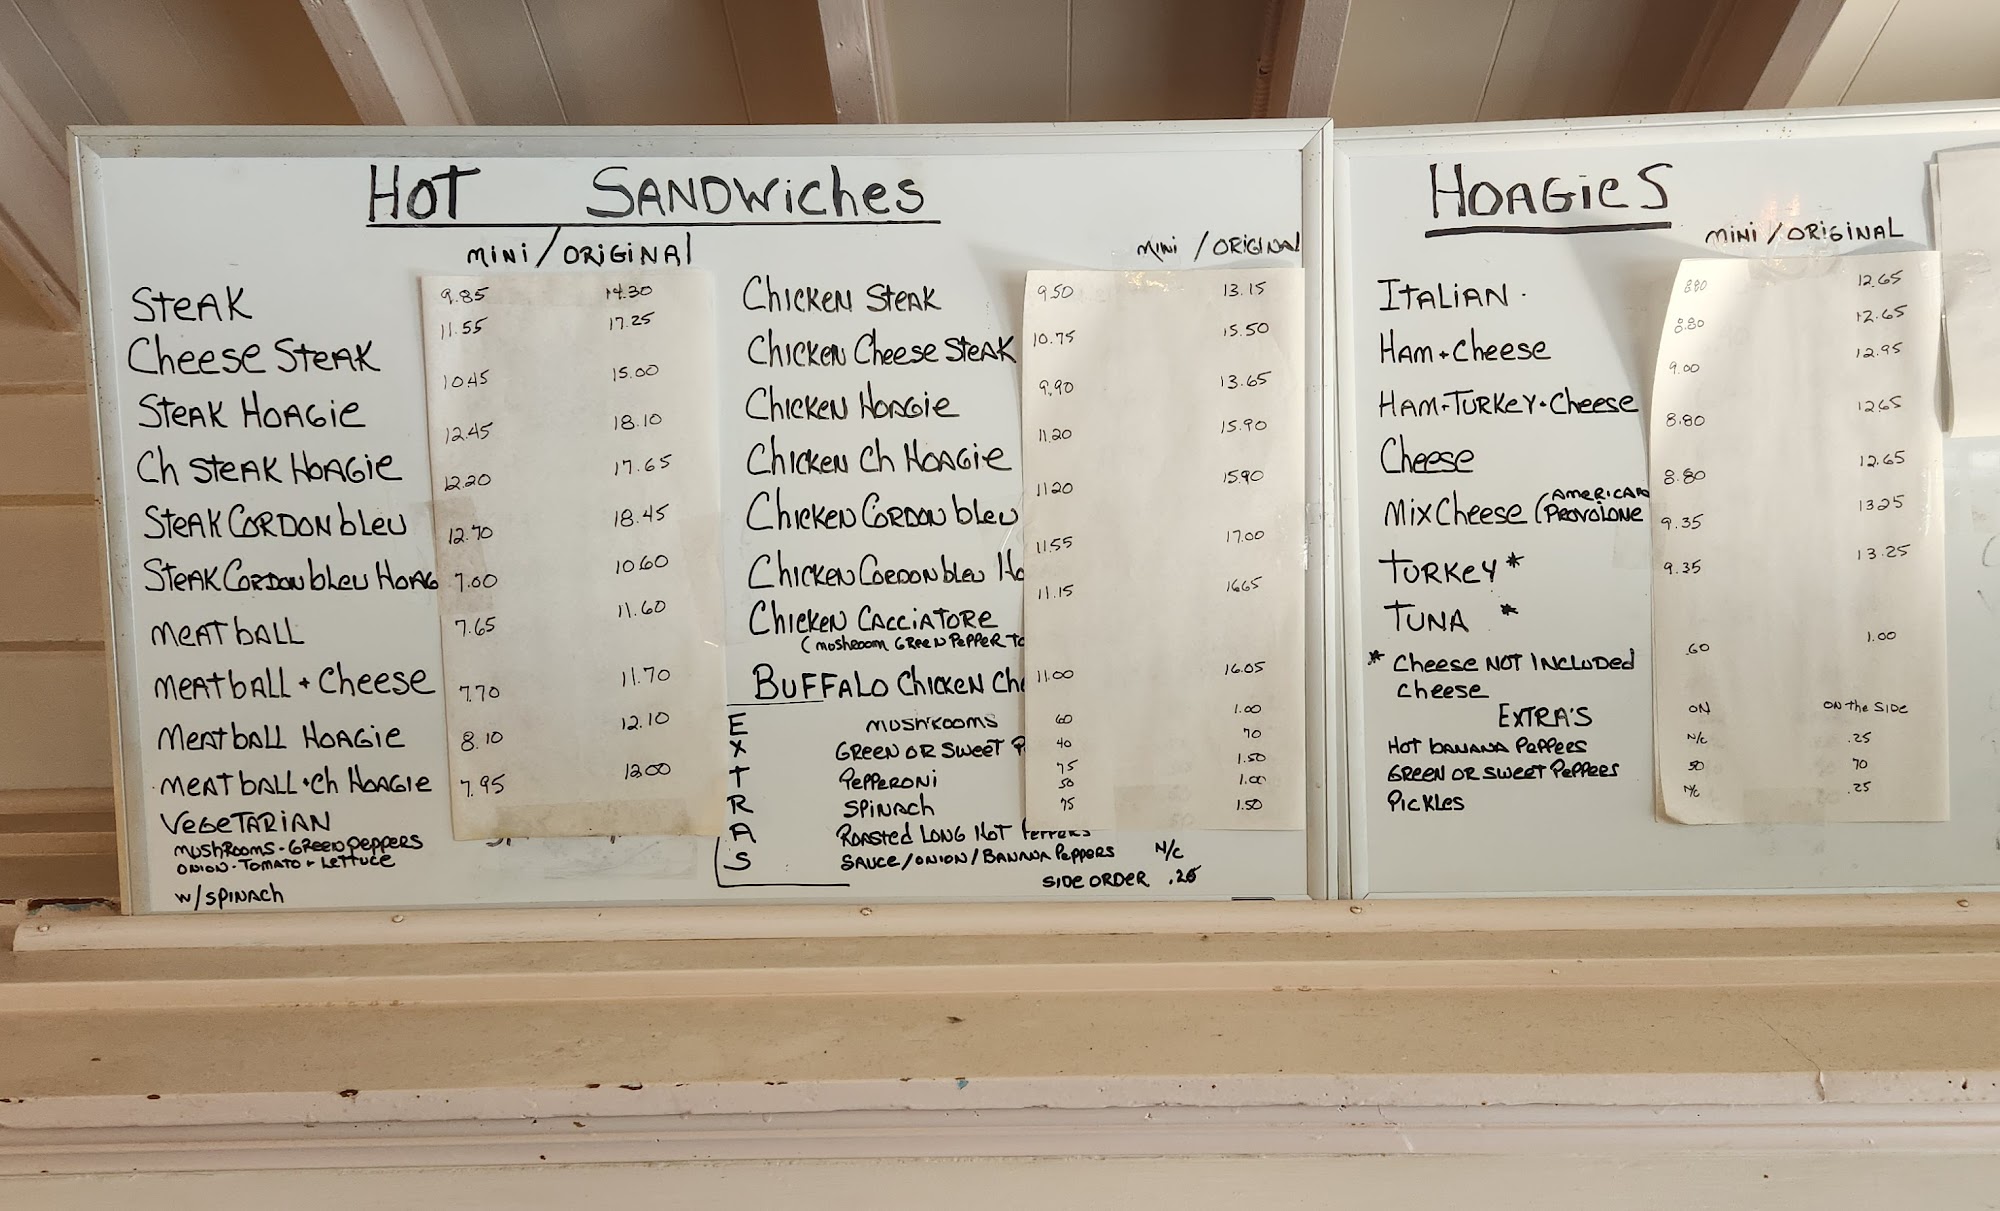 Hot Sandwiches
mini / Original
Steak 9.85 14.30
Cheese Steak 11.55 17.25
Steak Hoagie 10.45 15.00
Ch Steak Hoagie 12.45 18.10
Steak Cordon bleu 12.20 17.65
Steak Cordon bleu Hoag 12.70 18.45
Meatball 7.00 10.60
Meatball + Cheese 7.65 11.60
Meatball Hoagie 7.70 11.70
Meatball + Ch Hoagie 8.10 12.10
Vegetarian 7.95 12.00
Mushrooms - Green Peppers
Onion - Tomato + Lettuce
w/ Spinach
mini / Original
Chicken Steak 9.50 13.15
Chicken Cheese Steak 10.75 15.50
Chicken Hoagie 9.90 13.65
Chicken Ch Hoagie 11.20 15.90
Chicken Cordon bleu 11.20 15.90
Chicken Cordon bleu Ho 11.55 17.00
Chicken Cacciatore 11.15 16.65
(Mushroom Green Pepper To
Buffalo Chicken Che 11.00 16.05
EXTRAS
Mushrooms 60 1.00
Green or Sweet P 40 70
Pepperoni 75 1.50
Spinach 50 1.00
Roasted Long Hot Peppers 75 1.50
Sauce / Onion / Banana Peppers N/C
Side Order .25
Hoagies
mini / Original
Italian 8.80 12.65
Ham + Cheese 8.80 12.65
Ham + Turkey + Cheese 9.00 12.95
Cheese 8.80 12.65
Mix Cheese (American Provolone 8.80 12.65
Turkey * 9.35 13.25
Tuna * 9.35 13.25
* Cheese NOT Included
Cheese .60 1.00
Extra's ON ON the Side
Hot Banana Peppers N/C .25
Green or Sweet Peppers 50 70
Pickles N/C .25